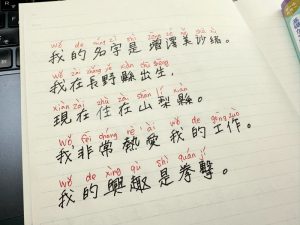 wǒ de míng zì shì
我的名字是瀧澤美沙緒。
wǒ zài cháng yě xiàn chū shēng
我在長野縣出生,
xiàn zài zhù zài shān lí xiàn
現在住在山梨縣。
wǒ fēi cháng rè ài wǒ de gōng zuò
我非常熱愛我的工作。
wǒ de xìng qù shì quán jí
我的興趣是拳擊。